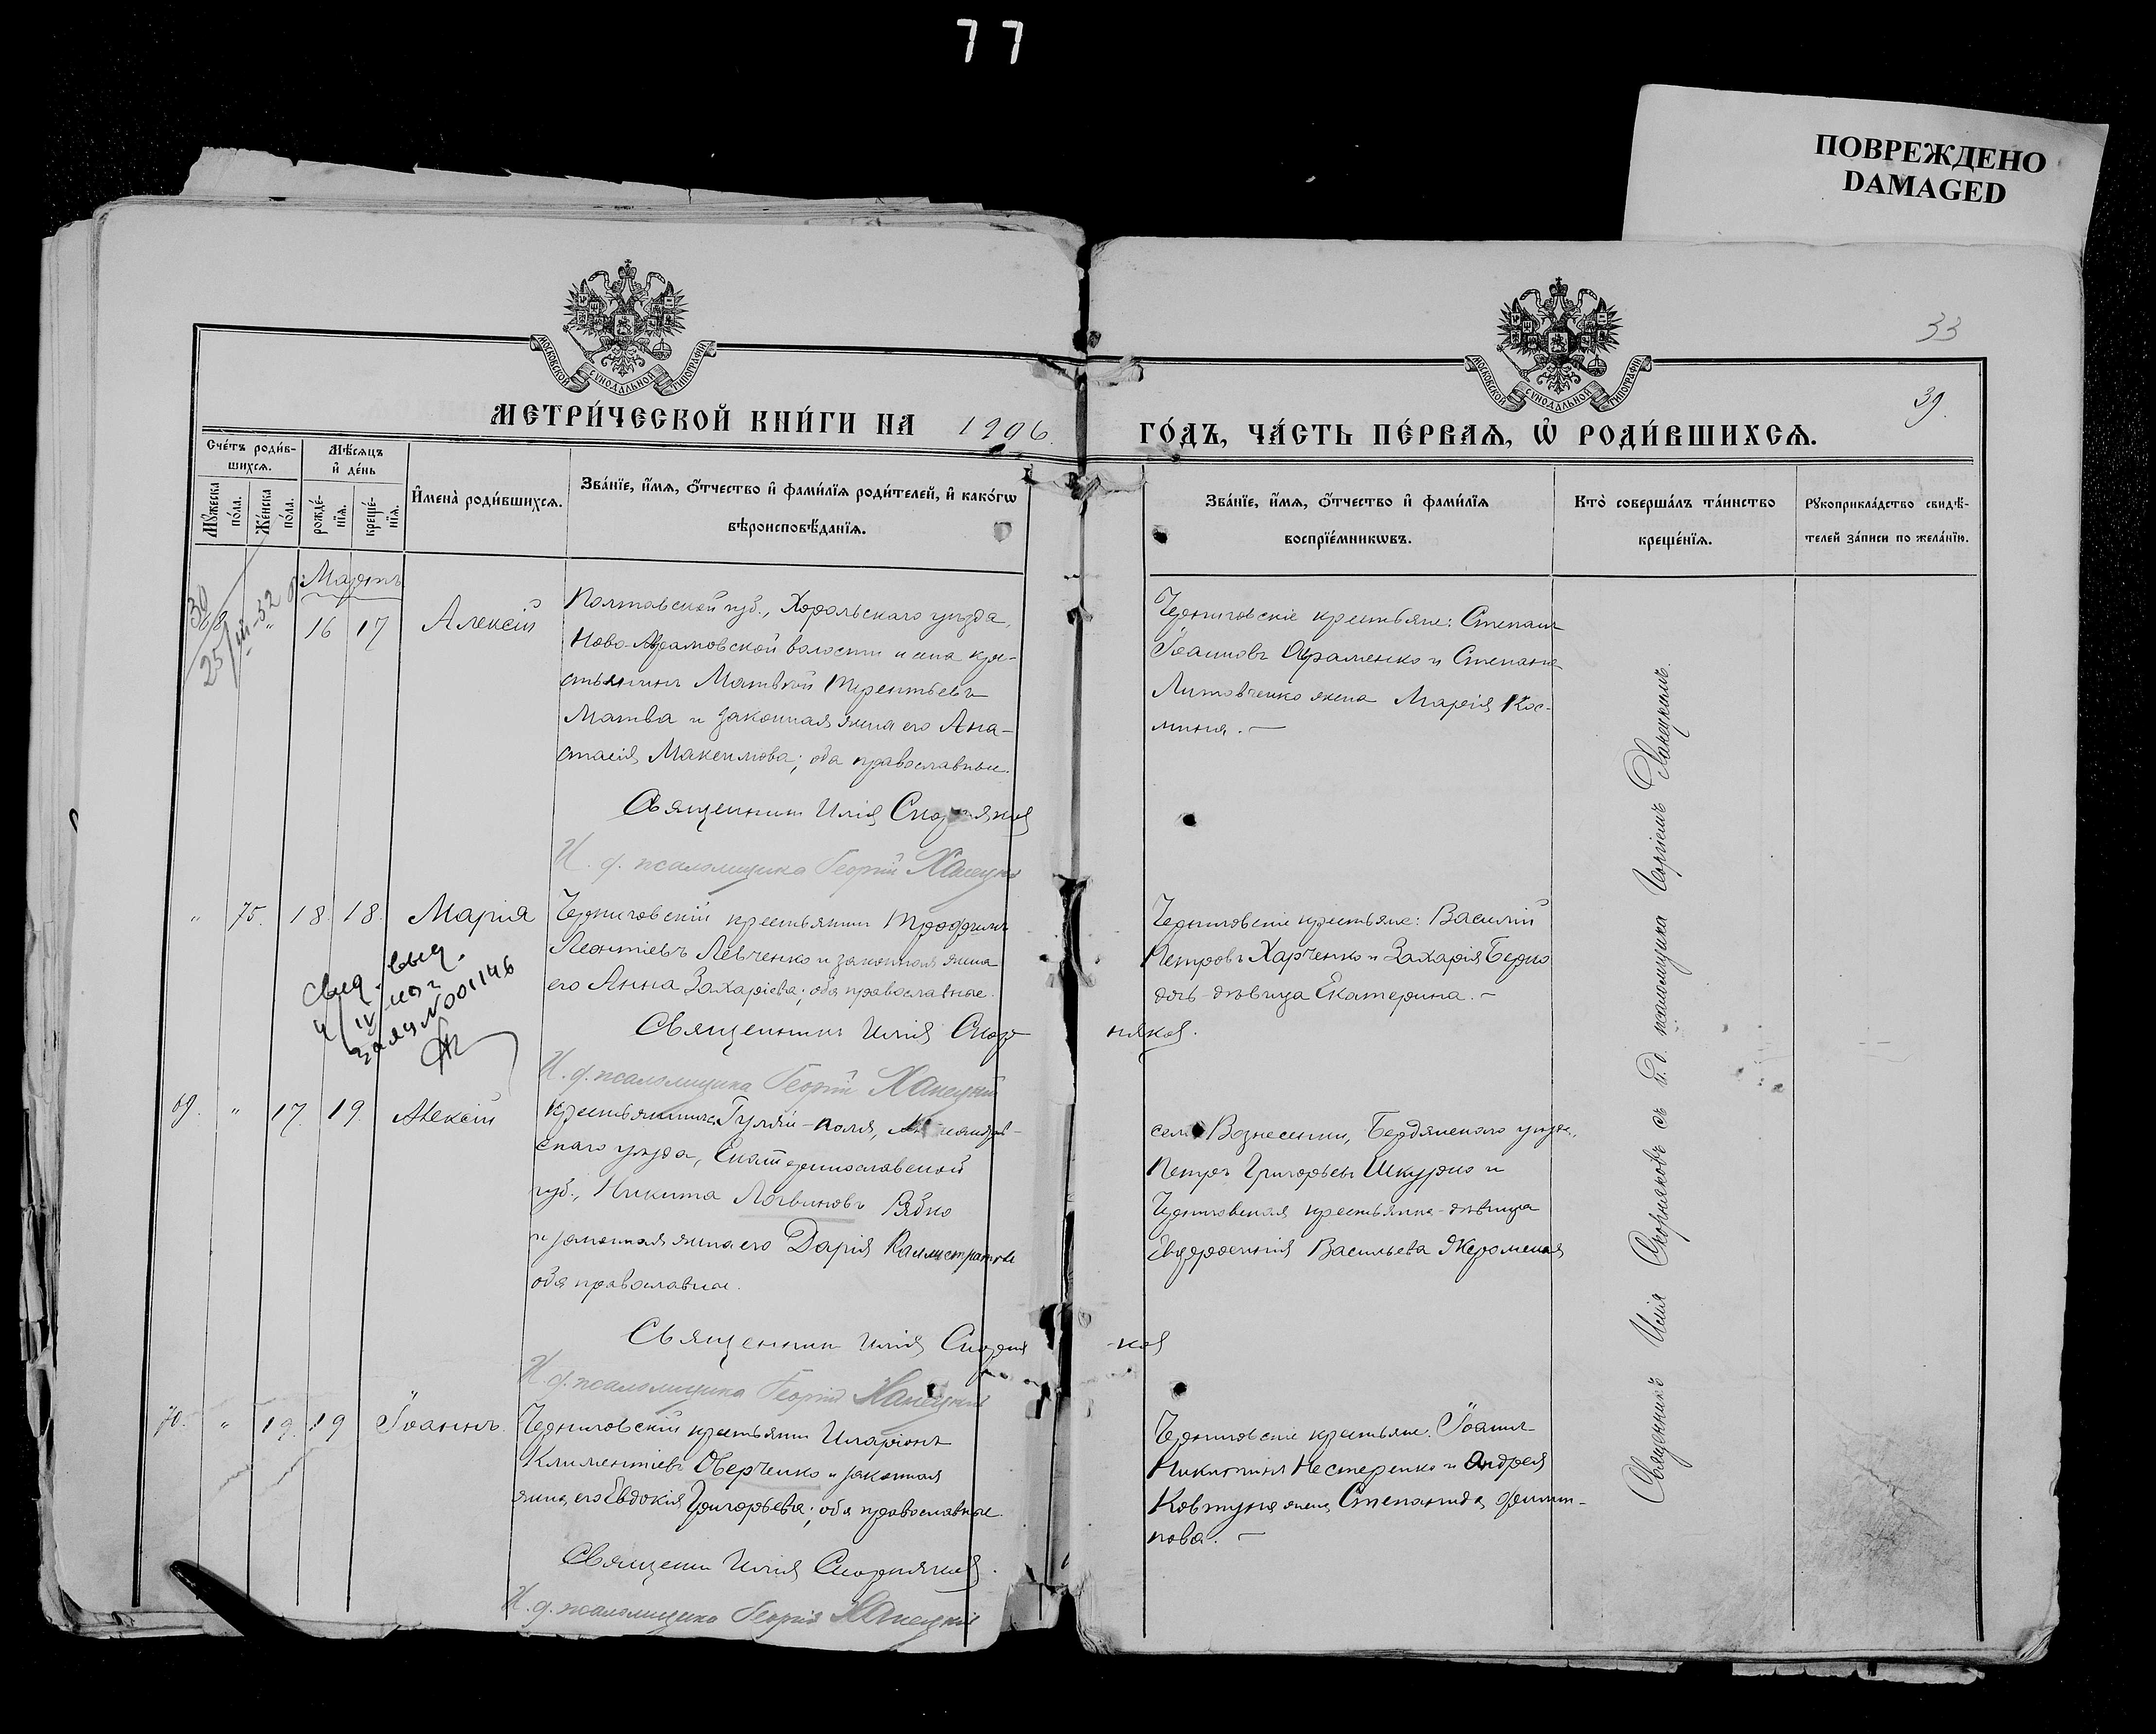 77
ПОВРЕЖДЕНО
DAMAGED
33
39.
МОСКОВСКОЙ СѴНОДАЛЬНОЙ ТИПОГРАФІИ
МОСКОВСКОЙ СѴНОДАЛЬНОЙ ТИПОГРАФІИ
МЕТРИ́ЧЕСКОЙ КНИ́ГИ НА 1906.
ГО́ДЪ, ЧА́СТЬ ПЕ́РВАѦ, Ѡ҆ РОДИ́ВШИХСѦ.
Сче́тъ роди́в-
шихсѧ.
Мꙋ́жеска по́ла.
Же́нска по́ла.
Мѣ́сѧцъ
и҆ де́нь
рожде́-
нїѧ.
креще́-
нїѧ.
И҆мена̀ роди́вшихсѧ.
Зва́нїе, и҆́мѧ, ѻ҆́тчество и҆ фами́лїѧ роди́телей, и҆ како́гѡ
вѣроисповѣ́данїѧ.
Зва́нїе, и҆́мѧ, ѻ҆́тчество и҆ фами́лїѧ
воспрїе́мникѡвъ.
Кто̀ соверша́лъ та́инство
креще́нїѧ.
Рꙋкоприкла́дство свидѣ́-
телей за́писи по жела́нїю.
Мартъ
68 " 16 17 Алексій
25/III-52
Полтавской губ., Хорольскаго уѣзда,
Ново-Аврамовской волости и села кре-
стьянинъ Матвѣй Терентьевъ
Матва и законная жена его Ана-
стасія Максимова; оба православные.
Священникъ Илія Скорняков
И. д. псаломщика Георгій Ханецкій
Черниговскіе крестьяне: Степанъ
Іоанновъ Авраменко и Степана
Литовченко жена Марія Кос-
мина. —
" 75. 18. 18. Марія
Черниговскій крестьянинъ Трофимъ
Леонтіевъ Левченко и законная жена
его Анна Захаріева; оба православные.
Священникъ Илія Скор
няков.
И. д. псаломщика Георгій Ханецкій
Черниговскіе крестьяне: Василій
Петровъ Харченко и Захарія Бедно
дочь-дѣвица Екатерина. —
свид. выд.
№001146
69. " 17. 19. Алексій
Крестьянинъ Гуляй-поля, Александров-
скаго уѣзда, Екатеринославской
губ., Никита Логвиновъ Рябко
и законная жена его Дарія Каллистратова
оба православные.
Священникъ Илія Скорня
-ков
И. д. псаломщика Георгій Ханецкій
села Вознесенки, Бердянскаго уѣзда,
Петръ Григорьевъ Шкурко и
Черниговская крестьянка-дѣвица
Евфросинія Васильева Жеромская
70. " 19. 19 Іоаннъ.
Черниговскій крестьянинъ Иларіонъ
Климентіевъ Оверченко и законная
жена его Евдокія Григорьева; оба православные.
Священникъ Илія Скорняков.
И. д. псаломщика Георгій Ханецкій
Черниговскіе крестьяне: Іоаннъ
Никитинъ Нестеренко и Андрея
Ковтуна жена Степанида Филип-
пова. —
Священникъ Илія Скорняковъ съ и. д. псаломщика Георгіемъ Ханецкимъ.